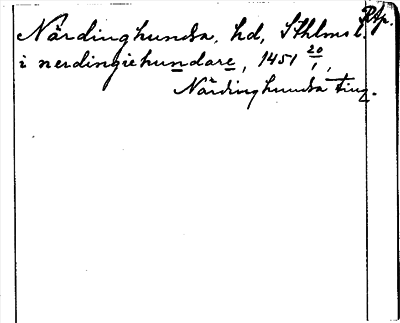 Närdinghundra, hd, Sthlms l.
RAp.
i nerdingiehundare, 1451 20/1,
Närdinghundra ting.